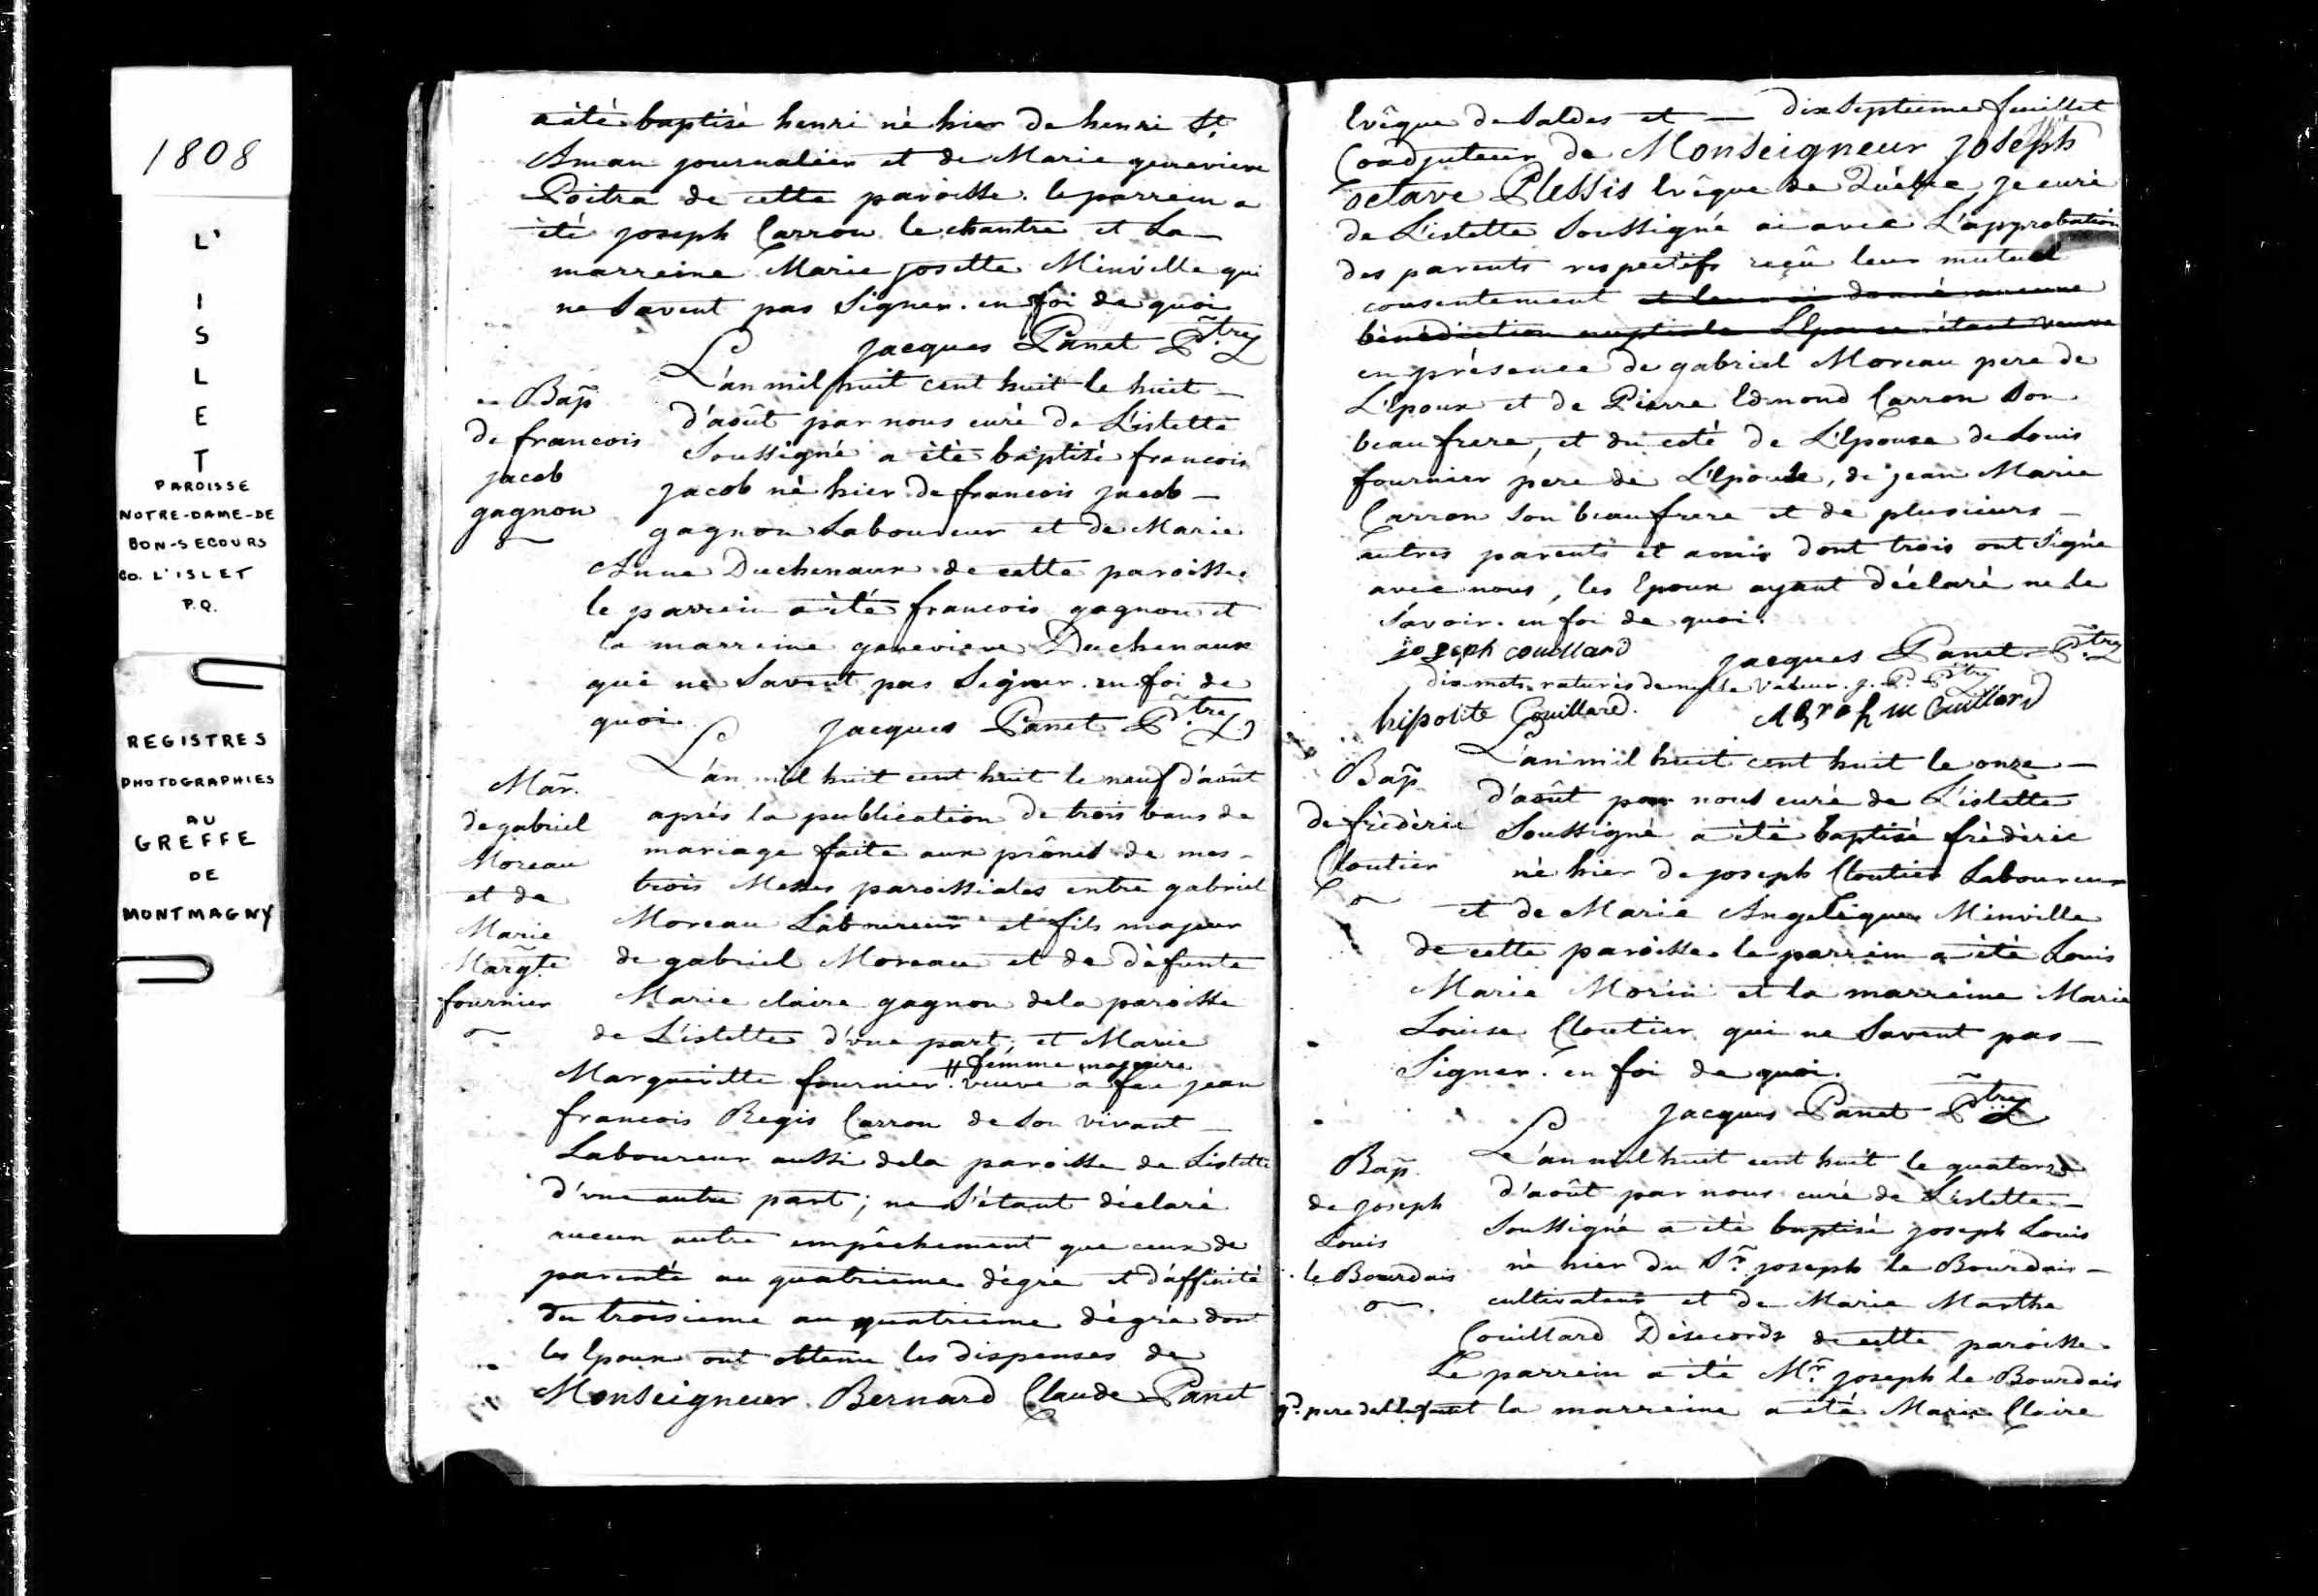 1808
L'
I
S
L
E
T
PAROISSE
NOTRE-DAME-DE
BON-SECOURS
CO. L'ISLET
P.Q.
REGISTRES
PHOTOGRAPHIES
AU
GREFFE
DE
MONTMAGNY
a été baptisé henri né hier de henri St.
Aman journalier et de Marie genevieve
Poitra de cette paroisse. le parrein a
été joseph Carron le chantre et La
marreine Marie josette Minville qui
ne Savent pas Signer. en foi de quoi
jacques Panet Ptre
Bap̃
de francois
jacob
gagnon
L'an mil huit cent huit le huit
d'août par nous curé de L'islette
Soussigné a été baptisé francois
jacob né hier de francois jacob
gagnon Laboureur et de Marie
Anne Duchenaux de cette paroisse.
le parrein a été francois gagnon et
la marreine genevieve Duchenaux
qui ne Savent pas Signer. en foi de
quoi. jacques Panet Ptre
Mar̃.
de gabriel
Moreau
et de
Marie
Margte
fournier
L'an mil huit cent huit le neuf d'août
après la publication de trois bans de
mariage faite aux prônes de mes
trois Messes paroissiales entre gabriel
Moreau Laboureur et fils majeur
de gabriel Moreau et de défunte
Marie claire gagnon dela paroisse
de L'islette d'une part, et Marie
# femme majeure
Margueritte fournier. veuve a feu jean
francois Regis Carron de Son vivant
Laboureur aussi dela paroisse de Listette
d'une autre part; ne S'étant déclaré
aucun autre empêchement que ceux de
parenté au quatrieme dégré et d'affinité
du troisieme au quatrieme dégré dont
les Epoux ont obtenu les dispenses de
Monseigneur Bernard Claude Panet
dixseptieme feuillet
Evêque de Saldes et
Coadjuteur de Monseigneur Joseph
octave Plessis Evêque de Québec, je curé
de L'islette Soussigné ai avec L'approbation
des parents respectifs reçû leur mutuel
consentement et leur ai donné aucune
bénédiction nuptiale L'Epouse étant veuve
en présence de gabriel Moreau pere de
L'Epoux et de Pierre Edmond Carron Son
beaufrere, et du coté de L'Epouse de Louis
fournier pere de L'Epouse, de jean Marie
Carron Son beaufrere et de plusieurs
autres parents et amis dont trois ont Signé
avec nous, les Epoux ayant déclaré ne le
Savoir. en foi de quoi.
joseph couillard jacques Panet Ptre
dix mots raturés de nulle valeur. j. P. Ptre
hipolite Couillard. Abrah m Couillard
Bap̃
de frédéric
Cloutier
L'an mil huit cent huit le onze
d'août par nous curé de L'islette
Soussigné a été baptisé frédéric
né hier de joseph Cloutier Laboureur
et de Marie Angelique Minville
de cette paroisse. le parrein a été Louis
Marie Morin et la marreine Marie
Louise Cloutier qui ne Savent pas
Signer. en foi de quoi.
jacques Panet Ptre
Bap̃.
de joseph
Louis
le Bourdais
L'an mil huit cent huit le quatorze
d'août par nous curé de L'islette
Soussigné a été baptisé joseph Louis
né hier du Sr. joseph le Bourdais
cultivateur et de Marie Marthe
Couillard Désecords de cette paroisse.
Le parrein a été Mr. joseph le Bourdais
gd. pere de l'enfant la marreine a été Marie Claire